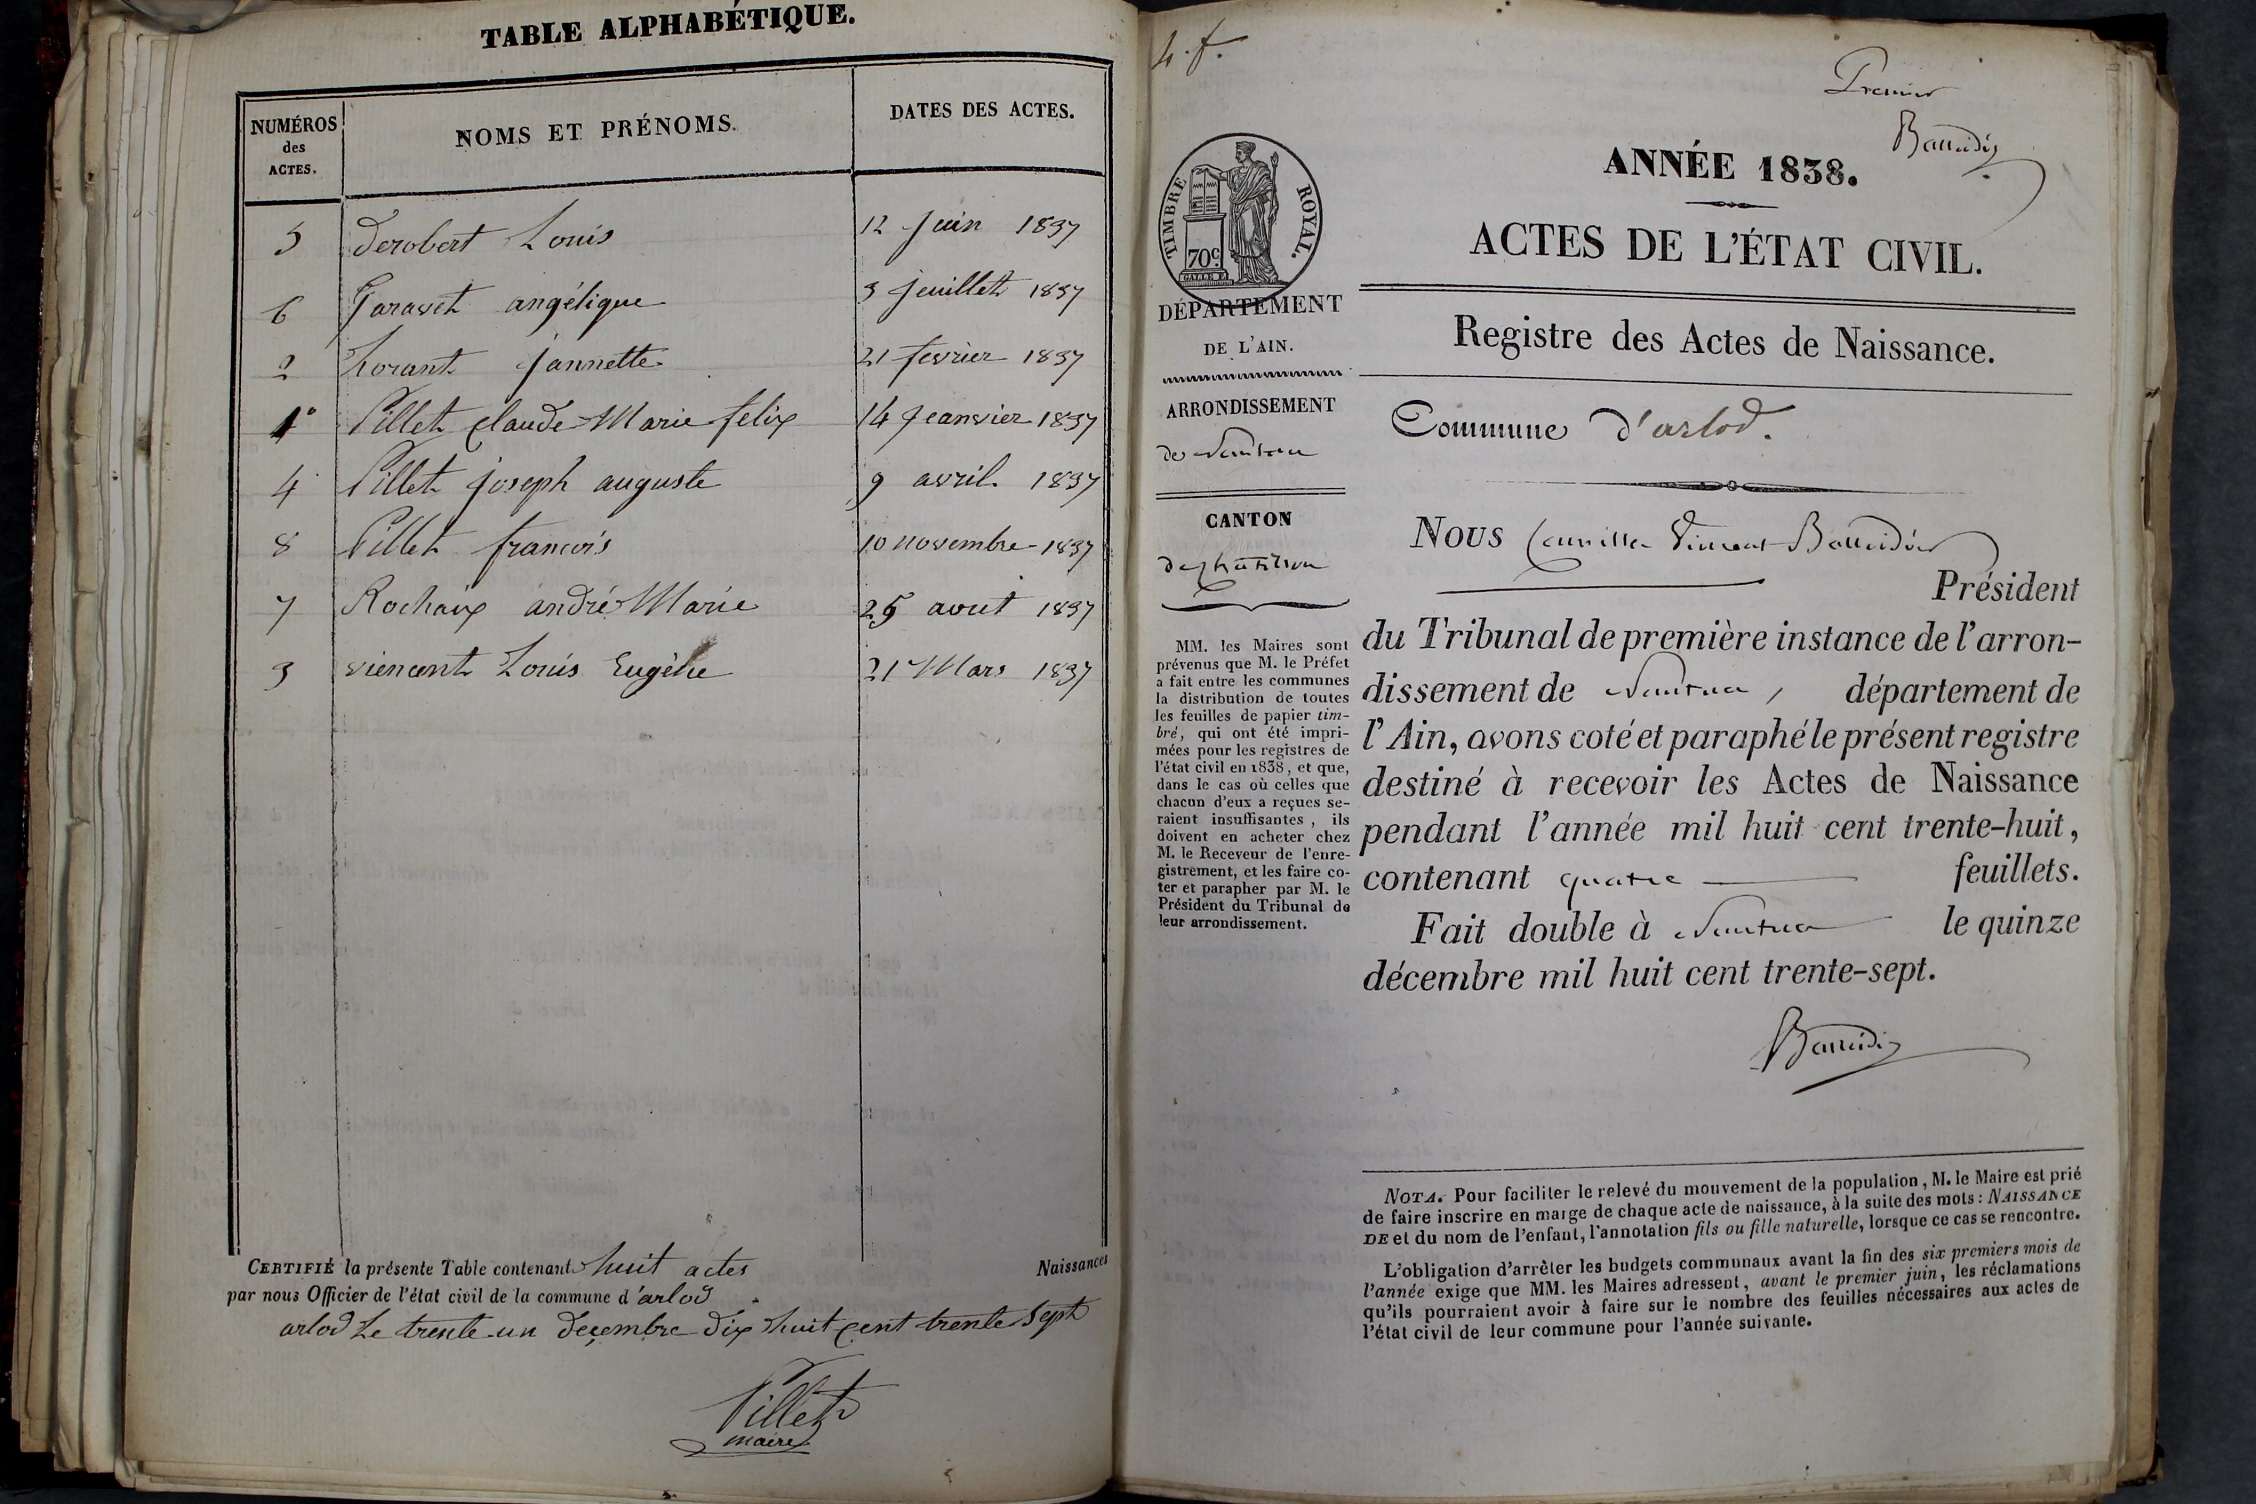 TABLE ALPHABÉTIQUE.
NUMÉROS des ACTES.
NOMS ET PRÉNOMS.
DATES DES ACTES.
5 Derobert Louis 12 Juin 1837
6 Garavet angélique 3 Jeuillet 1837
2 Lorant Jannette 21 fevrier 1837
1° Pillet claude Marie felix 14 Jeanvier 1837
4 Pillet joseph auguste 9 avril 1837
8 Pillet francois 10 novembre 1837
7 Rochaix andré Marie 25 aout 1837
3 viencent Louis Eugéne 21 Mars 1837
CERTIFIÉ la présente Table contenant huit actes Naissances
par nous Officier de l'état civil de la commune d'arlod
arlod Le trente un decembre dix huit cent trente Sept
Pillet
maire
4. f.
Premier
ANNÉE 1838.
ACTES DE L'ÉTAT CIVIL.
Registre des Actes de Naissance.
TIMBRE ROYAL.
70c.
DÉPARTEMENT
DE L'AIN.
ARRONDISSEMENT
de Nantua
CANTON
de chatillon
MM. les Maires sont
prévenus que M. le Préfet
a fait entre les communes
la distribution de toutes
les feuilles de papier tim-
bré, qui ont été impri-
mées pour les registres de
l'état civil en 1838, et que,
dans le cas où celles que
chacun d'eux a reçues se-
raient insuffisantes, ils
doivent en acheter chez
M. le Receveur de l'enre-
gistrement, et les faire co-
ter et parapher par M. le
Président du Tribunal de
leur arrondissement.
Commune d'arlod.
NOUS Camille Vincent
Président
du Tribunal de première instance de l'arron-
dissement de Nantua, département de
l'Ain, avons coté et paraphé le présent registre
destiné à recevoir les Actes de Naissance
pendant l'année mil huit cent trente-huit,
contenant quatre feuillets.
Fait double à Nantua le quinze
décembre mil huit cent trente-sept.
NOTA. Pour faciliter le relevé du mouvement de la population, M. le Maire est prié
de faire inscrire en marge de chaque acte de naissance, à la suite des mots : NAISSANCE
DE et du nom de l'enfant, l'annotation fils ou fille naturelle, lorsque ce cas se rencontre.
L'obligation d'arrêter les budgets communaux avant la fin des six premiers mois de
l'année exige que MM. les Maires adressent, avant le premier juin, les réclamations
qu'ils pourraient avoir à faire sur le nombre des feuilles nécessaires aux actes de
l'état civil de leur commune pour l'année suivante.